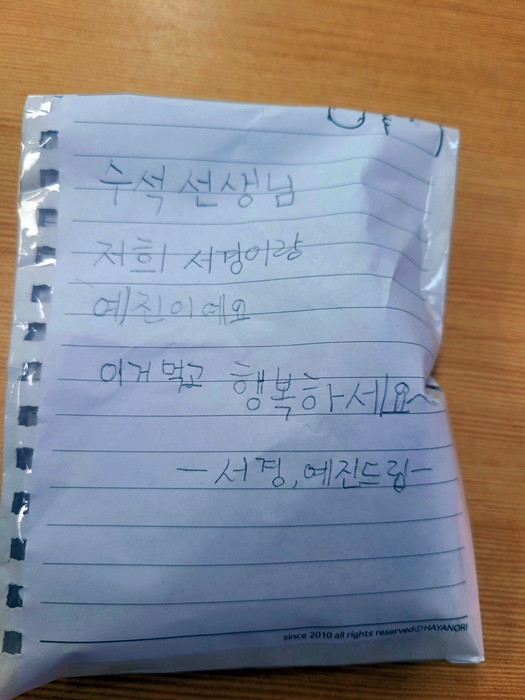 수석 선생님
저희 서경이랑
예진이예요
이거 먹고 행복하세요~
-서경, 예진드림-
since 2010 all rights reserved©HAYANORI